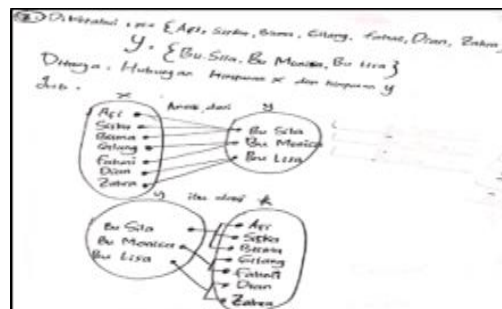 ② Diketahui : x = {Afi, Siska, Bama, Gilang, Fahmi, Dian, Zahra,
y = {Bu Sila, Bu Monica, Bu Lisa}
Ditanya . Hubungan Himpunan x dan himpunan y
Jwb.
x Anak dari y
Afi
Siska
Bama
Gilang
Fahmi
Dian
Zahra
Bu Sila
Bu Monica
Bu Lisa
y ibu dari x
Bu Sila
Bu Monica
Bu Lisa
Afi
Siska
Bama
Gilang
Fahmi
Dian
Zahra